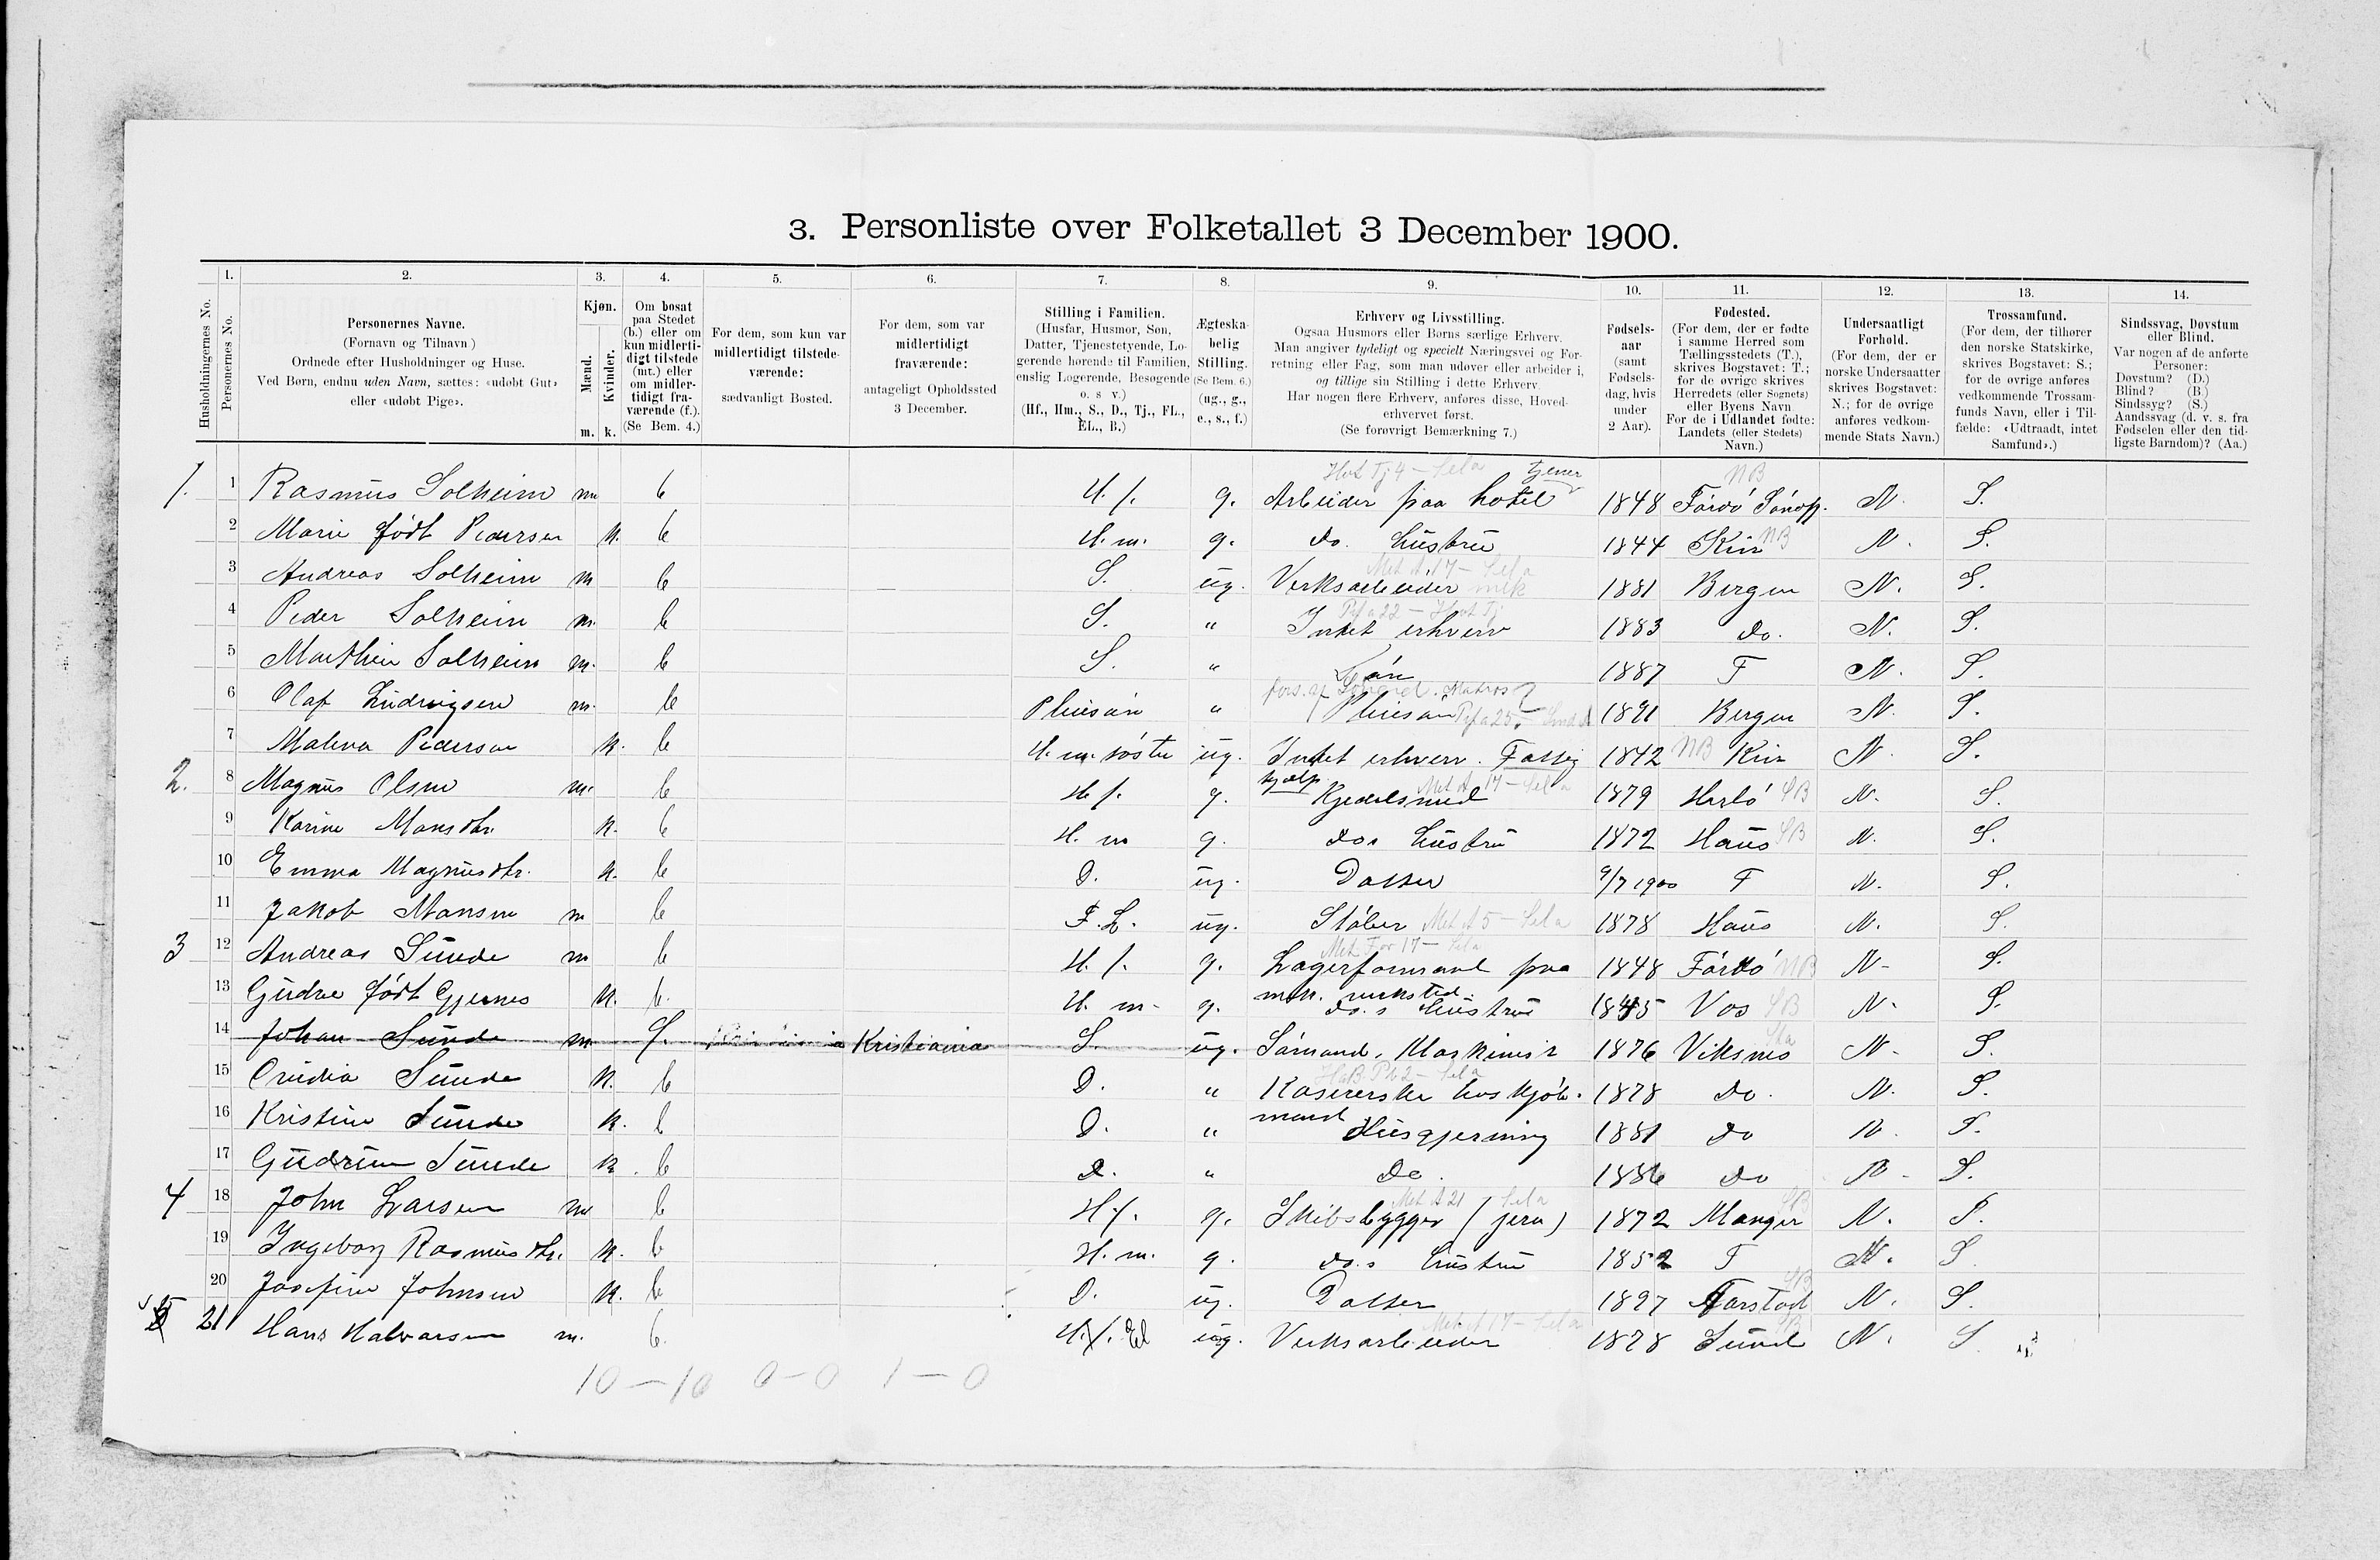 3. Personliste over Folketallet 3 December 1900.
Husholdningernes No.
1. Personernes No.
2. Personernes Navne.
(Fornavn og Tilnavn)
Ordnede efter Husholdninger og Huse.
Ved Børn, endnu uden Navn, sættes: «udøbt Gut»
eller «udøbt Pige».
3. Kjøn.
Mænd. m.
Kvinder. k.
4. Om bosat
paa Stedet
(b.) eller om
kun midlerti-
digt tilstede
(mt.) eller
om midler-
tidigt fra-
værende (f.).
(Se Bem. 4.)
5. For dem, som kun var
midlertidigt tilstede-
værende:
sædvanligt Bosted.
6. For dem, som var
midlertidigt
fraværende:
antageligt Opholdssted
3 December.
7. Stilling i Familien.
(Husfar, Husmor, Søn,
Datter, Tjenestetyende, Lo-
gerende hørende til Familien,
enslig Logerende, Besøgende
o. s v.)
(Hf., Hm., S., D., Tj., FL.,
EL., B.)
8. Ægteska-
belig
Stilling.
(Se Bem. 6.)
(ug., g.,
e., s., f.)
9. Erhverv og Livsstilling.
Ogsaa Husmors eller Børns særlige Erhverv.
Man angiver tydeligt og specielt Næringsvei og For-
retning eller Fag, som man udøver eller arbeider i,
og tillige sin Stilling i dette Erhverv
Har nogen flere Erhverv, anføres disse, Hoved-
erhvervet først.
(Se forøvrigt Bemærkning 7.)
10. Fødsels-
aar
(samt
Fødsels-
dag, hvis
under
2 Aar).
11. Fødested.
(For dem, der er fødte
i samme Herred som
Tællingsstedets (T.),
skrives Bogstavet: T.;
for de øvrige skrives
Herredets (eller Sognets)
eller Byens Navn
For de i Udlandet fødte:
Landets (eller Stedets)
Navn.)
12. Undersaatligt
Forhold.
(For dem, der er
norske Undersaatter
skrives Bogstavet:
N.; for de øvrige
anføres vedkom-
mende Stats Navn.)
13. Trossamfund.
(For dem, der tilhører
den norske Statskirke,
skrives Bogstavet: S.;
for de øvrige anføres
vedkommende Trossam-
funds Navn, eller i Til-
fælde: «Udtraadt, intet
Samfund».)
14. Sindssvag, Døvstum
eller Blind.
Var nogen af de anførte
Personer:
Døvstum? (D.)
Blind? (B.)
Sindssyg? (S.)
Aandssvag (d. v. s. fra
Fødselen eller den tid-
ligste Barndom)? (Aa.)
Hot Tj 4 – Sela tjener NB
1. 1 Rasmus Solheim m b H.f. g. Arbeider paa hotel 1848 N. S.
2 Marie født Pedersen k. b H.m. g. do. Hustru 1844 Kin NB N. S.
Met A 17 – Sela
3 Andreas Solheim m b S. ug. Verksarbeider mek 1881 Bergen N. S.
4 Peder Solheim m. b S. " Intet erhverv 1883 do. N. S.
5 Marthin Solheim m. b S. " Søn 1887 T N. S.
6 Olaf Ludvigsen m. b Pleiesøn " Pleiesøn 1891 Bergen N. S.
7 Malena Pedersen k. b H.m. søster ug. Intet erhverv. Fattig 1842 NB Kin N S.
hjælp Met A 17 – Sela
2. 8 Magnus Olsen m. b H.f. g. Kjedelsmed 1879 Herlø SB N. S.
9 Karine Monsdtr. k. b H.m g. dos Hustru 1872 Haus SB N. S.
10 Emma Magnusdtr. k. b D. ug. Datter 9/7 1900 T N. S.
11 Jakob Monsen m b F.L. ug. Støber Met A 5 – Sela 1878 Haus N. S.
Met For 17 – Sela
3 12 Andreas Sunde m b H.f. g. Lagerformand paa 1848 NB N- S.
mek. verksted.
13 født Gjernes k. b. H.m- g. do.s Hustru 1845 Vos SB N- S.
14 Johan Sunde m f. Kristiania S. ug. Sømand, Maskinist 1876 Viksnes N- S.
15 Ovidia Sunde k. b D. " Kasererske hos kjøb- 1878 do. N. S.
mand
16 Kristine Sunde k. b D. " Husgjerning 1881 do N. S.
17 Gudrun Sunde k. b D. " do. 1886 do N- S.
Met A 21 Sela SB
4 18 John Larsen m b H.f. g. Skibsbygger (jern) 1872 Manger N. S.
19 Ingeborg Rasmusdtr. k. b H.m. g. do.s Hustru 1852 T N. S
20 Josefine Johnsen k. b D. ug. Datter 1897 N. S.
Met A 17 – Sela
5 21 Hans Halvorsen m. b. H.f. El ug. Verksarbeider 1878 Sund N. S
10 – 10 0 – 0 1 – 0